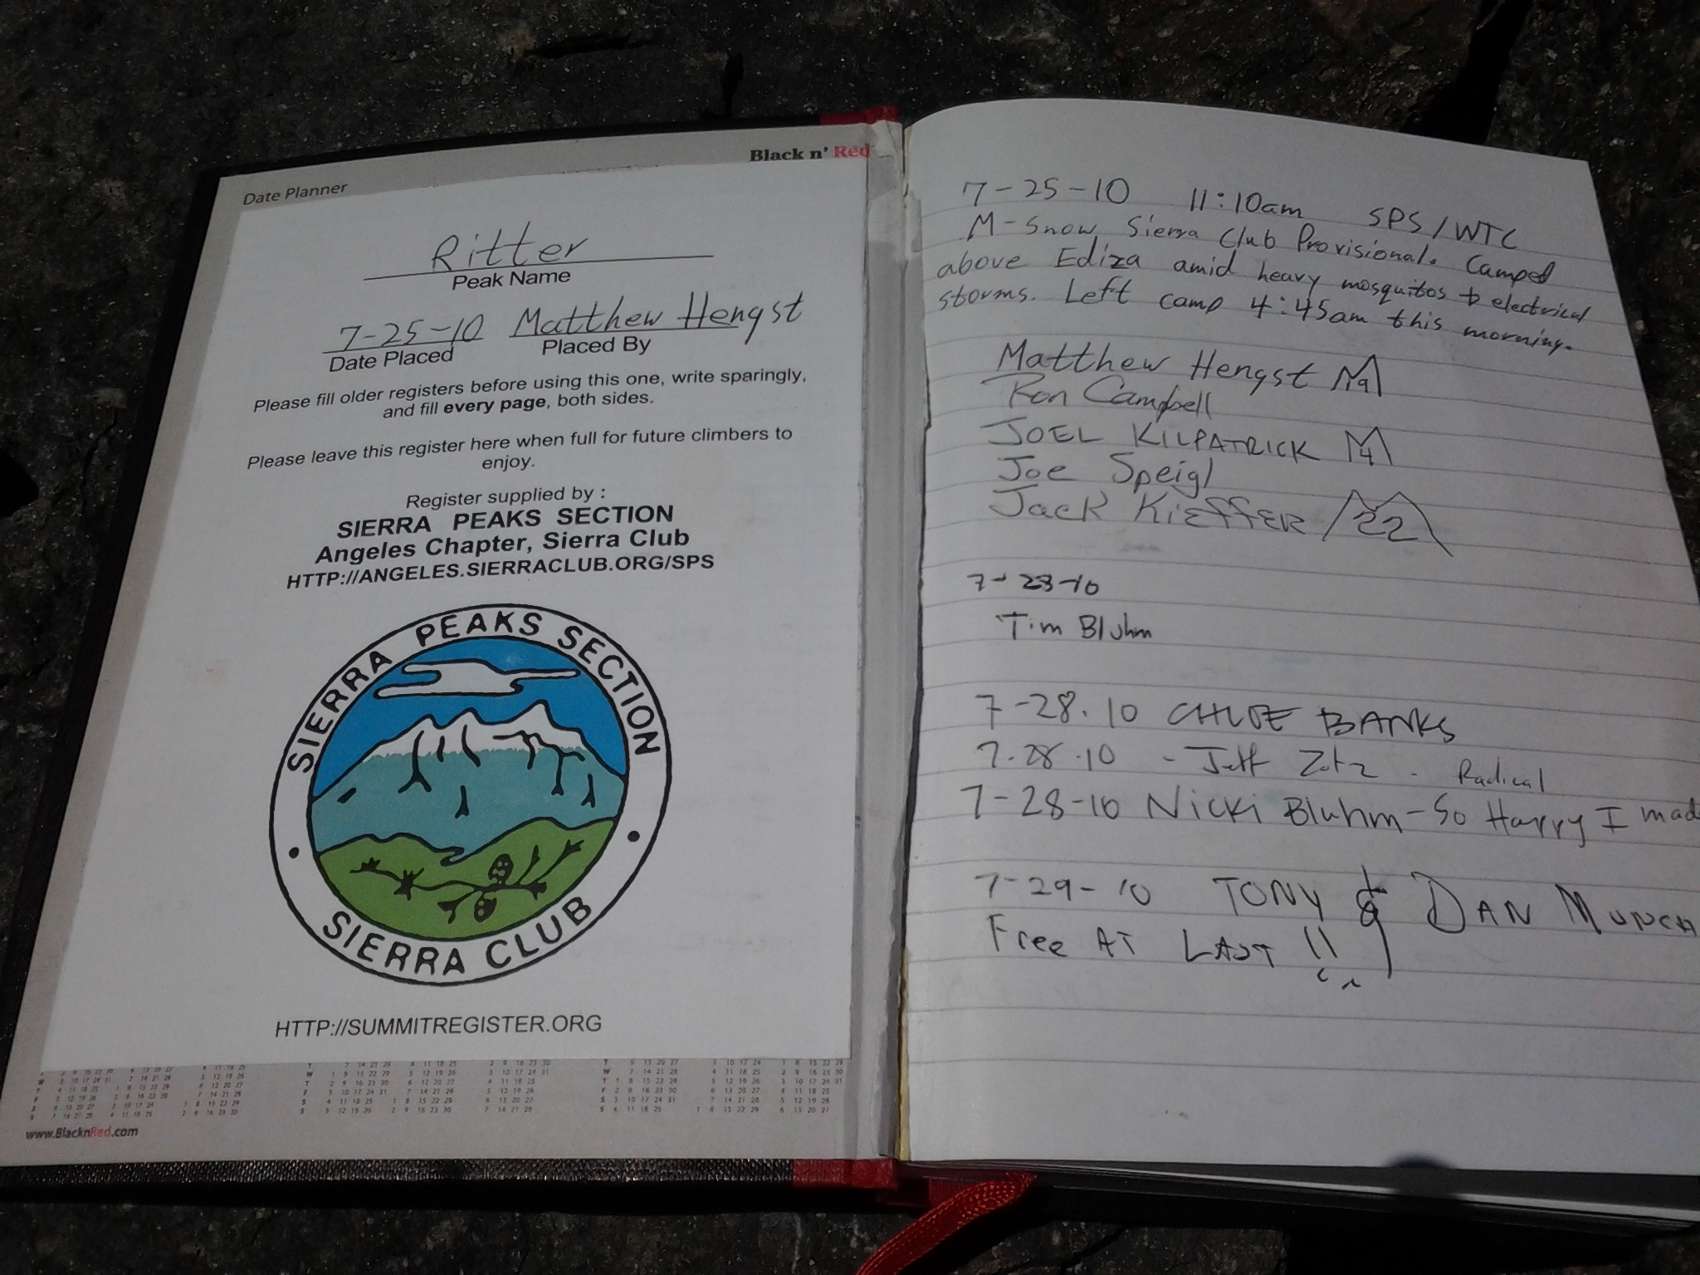 Black n' Red
Date Planner
Ritter
Peak Name
7-25-10 Matthew Hengst
Date Placed Placed By
Please fill older registers before using this one, write sparingly,
and fill every page, both sides.
Please leave this register here when full for future climbers to
enjoy.
Register supplied by :
SIERRA PEAKS SECTION
Angeles Chapter, Sierra Club
HTTP://ANGELES.SIERRACLUB.ORG/SPS
SIERRA PEAKS SECTION
SIERRA CLUB
HTTP://SUMMITREGISTER.ORG
www.BlacknRed.com
7-25-10 11:10am SPS/WTC
M-Snow Sierra Club Provisional. Camped
above Ediza amid heavy mosquitos & electrical
storms. Left camp 4:45am this morning.
Matthew Hengst M9
Ron Campbell
JOEL KILPATRICK M4
Joe Speigl
Jack Kieffer 22
7-28-10
Tim Bluhm
7-28.10 CHLOE BANKS
7.28.10 - Jeff - Radical
7-28-10 Nicki Bluhm - So Happy I mad
7-29-10 TONY & DAN MUNCH
Free AT LAST !!